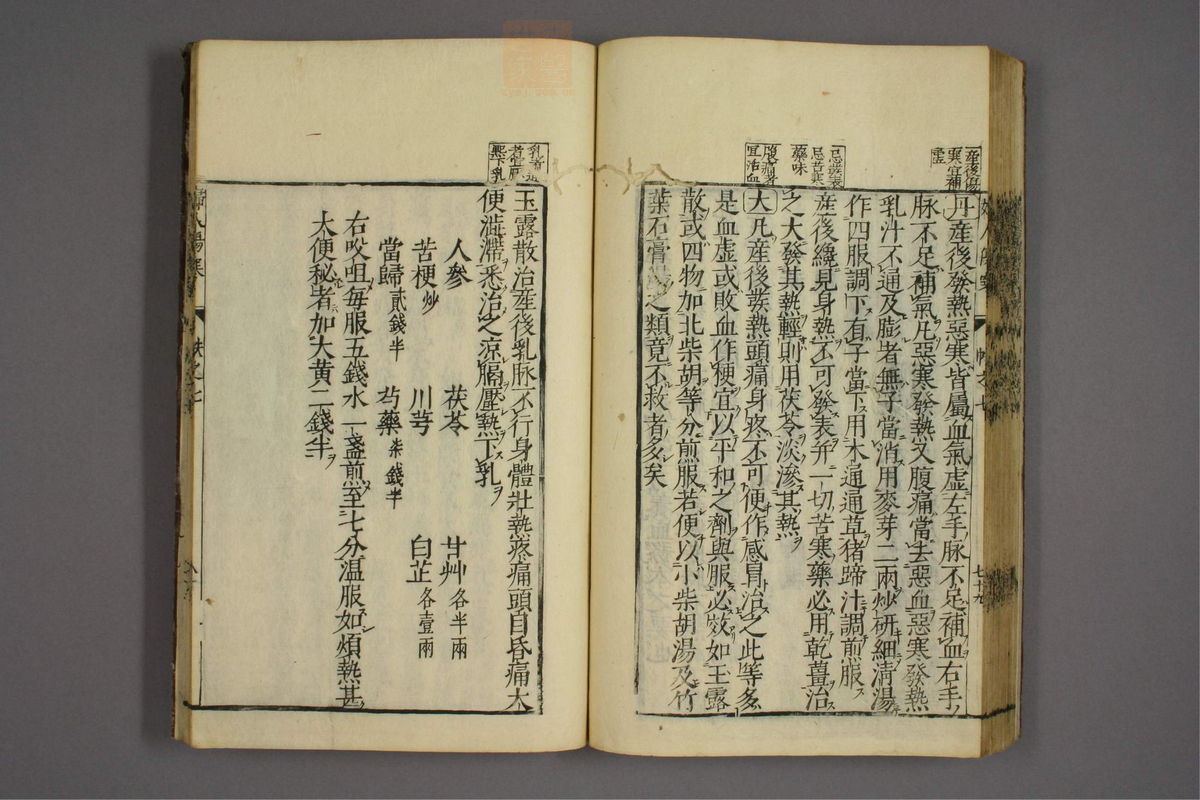 産後傷
寒宜補
虚
丹産後發熱惡寒皆屬血氣虚左手脉不足補血右手
脉不足補氣凡惡寒發熱又腹痛當去惡血惡寒發熱
乳汁不通及膨者無子當消用麥芽二兩炒研細清湯
作四服調下有子當下用木通通草猪蹄汁調煎服
忌發表
忌苦寒
藥味
産後纔見身熱不可發表并一切苦寒藥必用乾薑治
之大發其熱輕則用茯苓淡滲其熱
腹痛者
宜治血
大凡産後發熱頭痛身疼不可便作感冒治之此等多
是血虚或敗血作梗宜以平和之劑與服必效如玉露
散或四物加北柴胡等分煎服若便以小柴胡湯及竹
葉石膏湯之類竟不救者多矣
玉露散治産後乳脉不行身體壯熱疼痛頭目昏痛大
便澁滯悉治之涼膈壓熱下乳
人參 茯苓 甘艸各半兩
苦梗炒 川芎 白芷各壹兩
當歸貳錢半 芍藥柒錢半
右㕮咀每服五錢水一盞煎至七分温服如煩熱甚
大便秘者加大黄二錢半